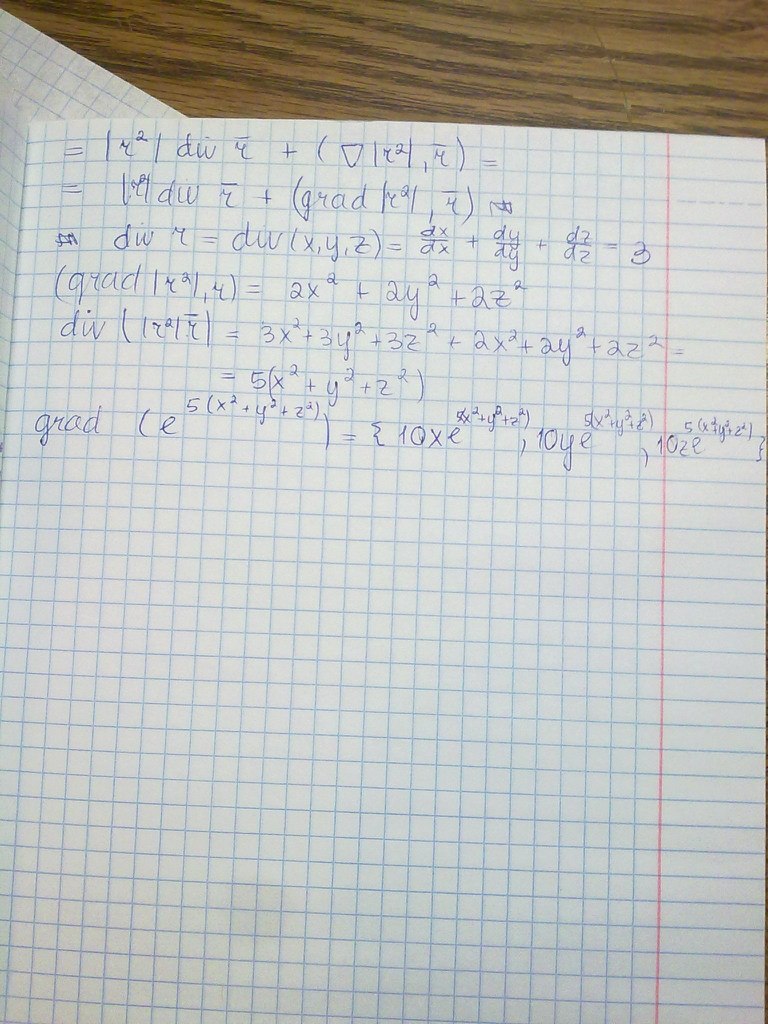 = |r²| div r̄ + (∇|r²|, r̄) =
= |r²| div r̄ + (grad |r²|, r̄)
div r = div(x,y,z) = dx/dx + dy/dy + dz/dz = 3
(grad |r²|, r) = 2x² + 2y² + 2z²
div (|r²|r̄| = 3x²+3y²+3z² + 2x²+2y²+2z² =
= 5(x² + y² + z²)
grad (e^5(x²+y²+z²)) = {10xe^5(x²+y²+z²), 10ye^5(x²+y²+z²), 10ze^5(x²+y²+z²)}